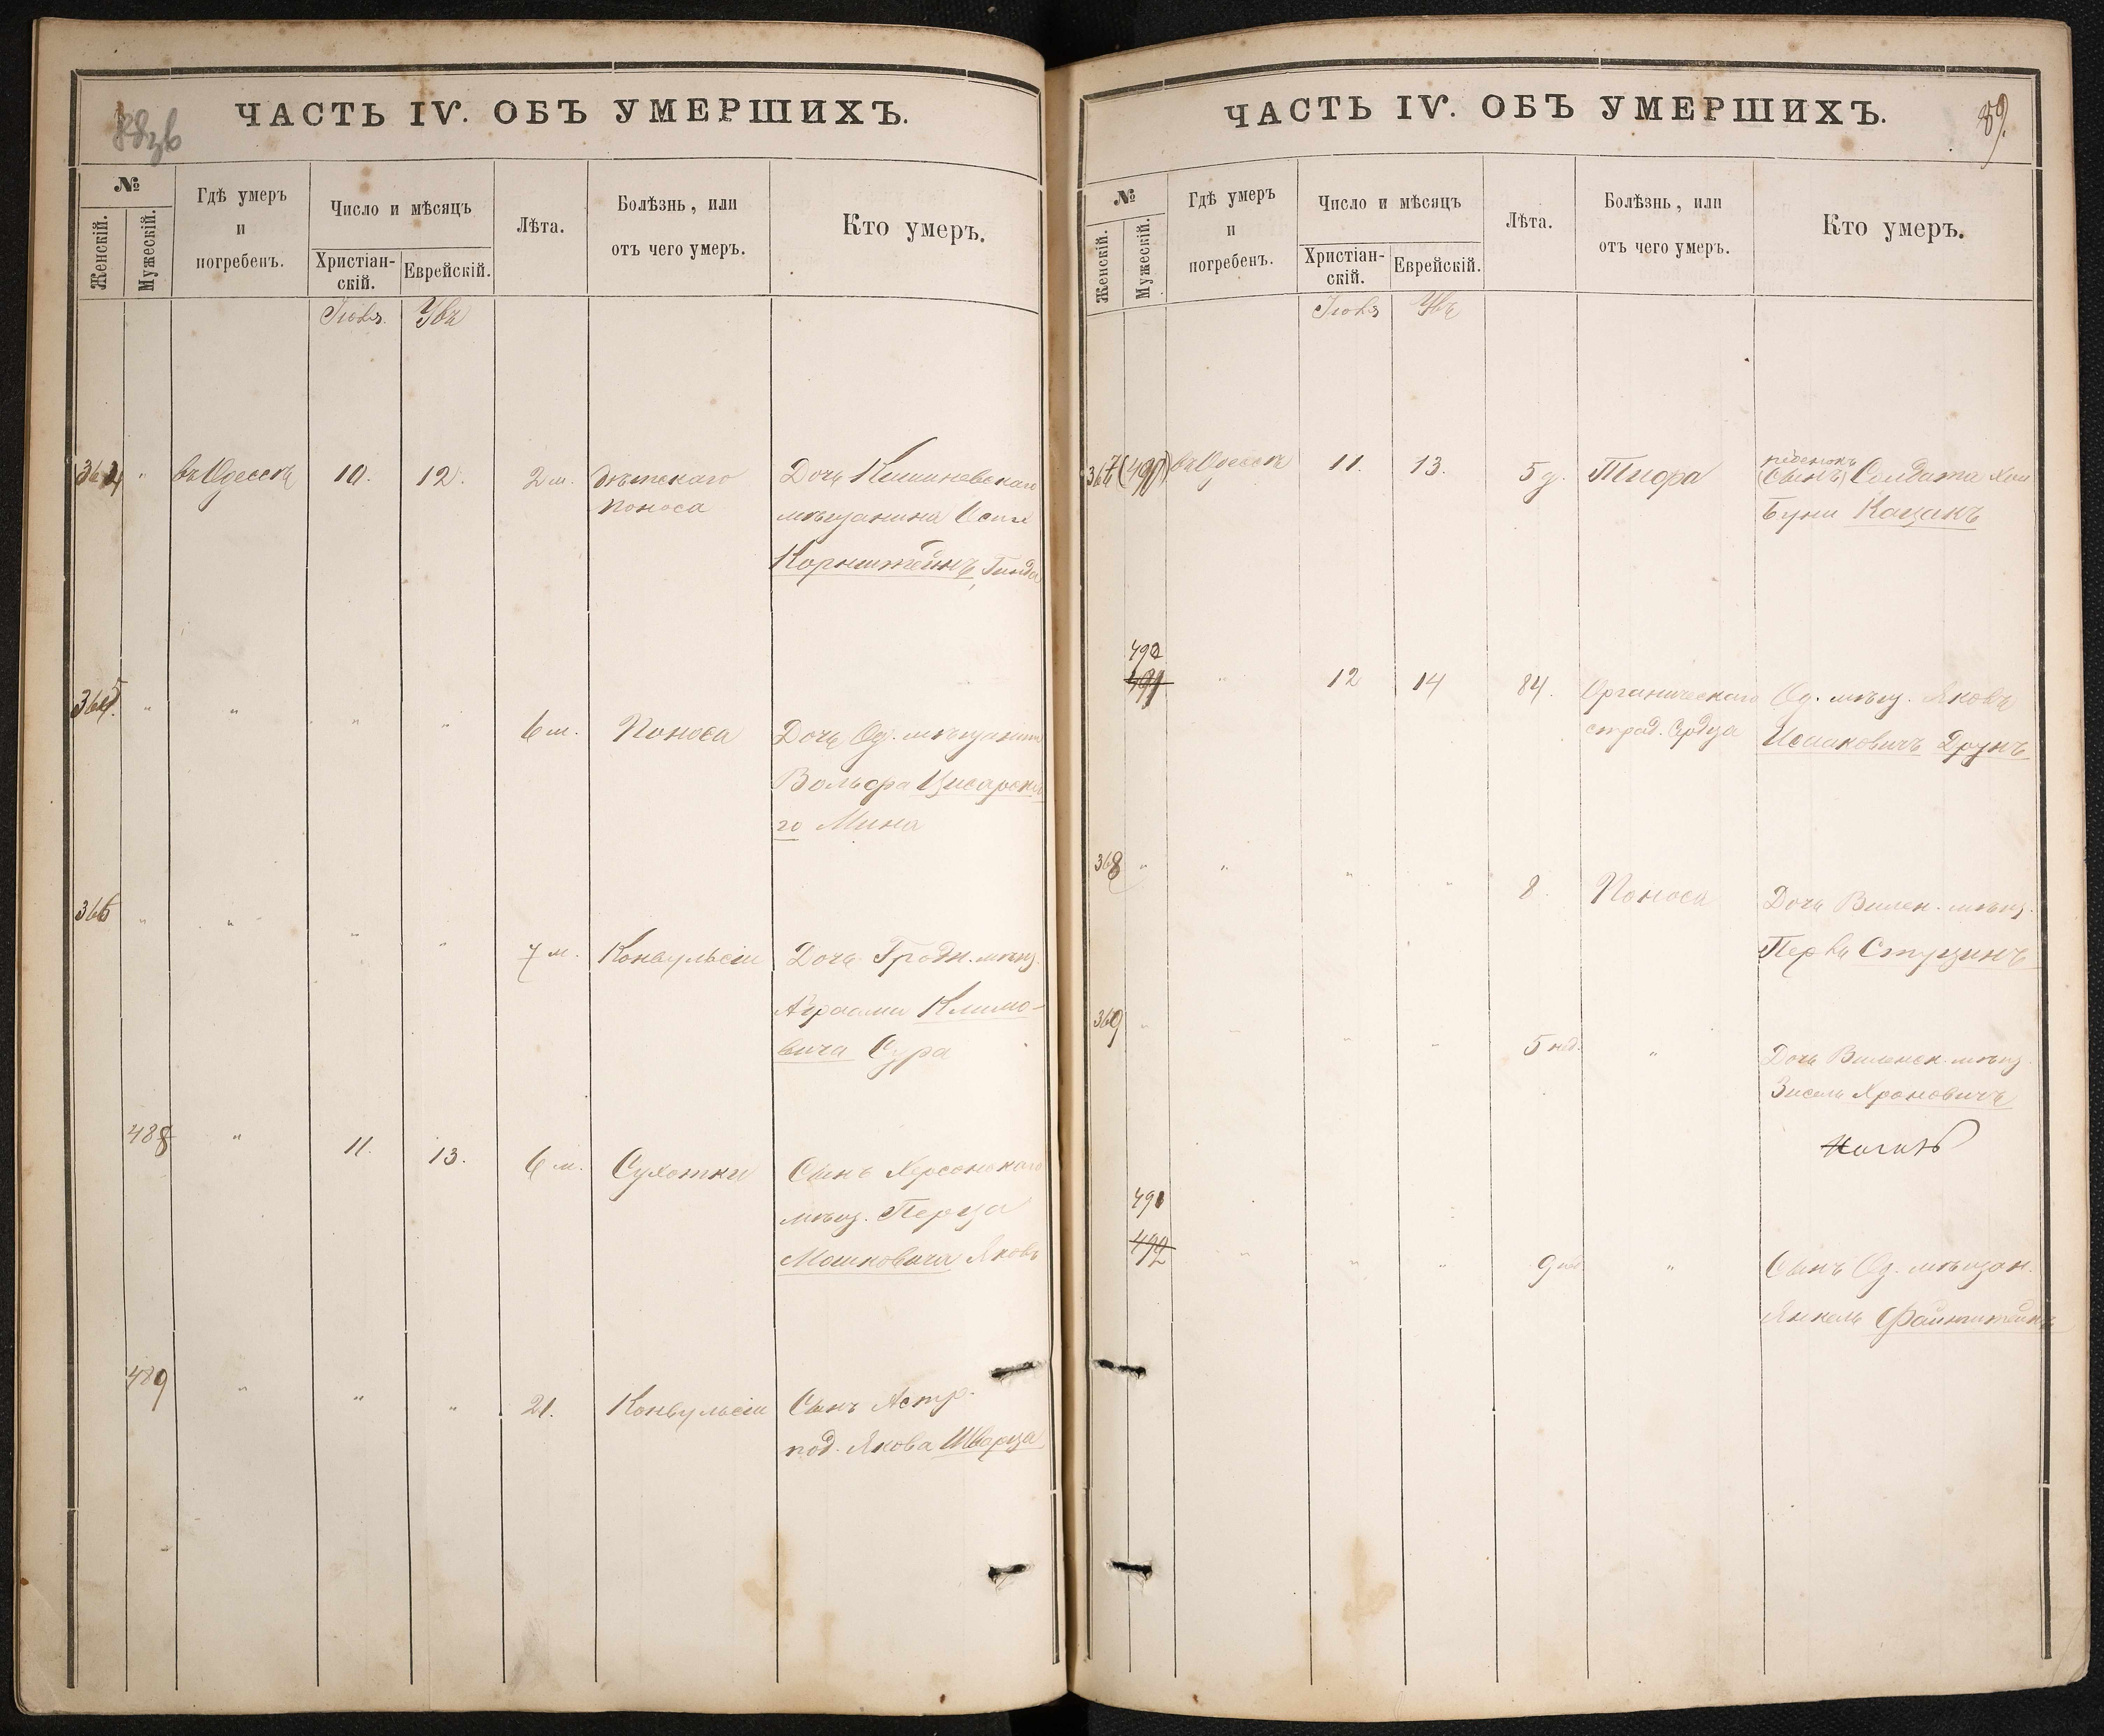 ЧАСТЬ IV. ОБЪ УМЕРШИХЪ.
№
Женскій.
Мужескій.
Гдѣ умеръ
и
погребенъ.
Число и мѣсяцъ
Христіан-
скій.
Еврейскій.
Лѣта.
Болѣзнь, или
отъ чего умеръ.
Кто умеръ.
364 " въ Одессѣ 10. 12. 2 м. Дѣтскаго
поноса
Дочь Кишиневскаго
мѣщанина
Корнштейнъ,
365. " " " " 6 м. Поноса Дочь Од. мѣщанина
Вольфа Цисарска
го Мина
366 " " " " 7 м. Конвульсіи Дочь Гродн. мѣщ.
Абраама Климо-
вича Сура
488 " 11. 13. 6 м. Сухотки Сынъ Херсонскаго
мѣщ. Перца
Мошковича Яковъ
489 " " " 21. Конвульсіи Сынъ Астр.
под. Якова Шварца
ЧАСТЬ IV. ОБЪ УМЕРШИХЪ.
89.
№
Женскій.
Мужескій.
Гдѣ умеръ
и
погребенъ.
Число и мѣсяцъ
Христіан-
скій.
Еврейскій.
Лѣта.
Болѣзнь, или
отъ чего умеръ.
Кто умеръ.
367 (490) въ Одессѣ 11. 13. 5 д. Тифа
ребенокъ
(Сынъ) Солдата
Кацанъ
490
491 " 12 14 84. Органическаго
страд. Сердца
Од. мѣщ. Яковъ
Исааковичъ Друнъ
368 " " " " 8 Поноса Дочь Вилен. мѣщ.
Ступинъ
369 " " " " 5 нед. " Дочь Виленск. мѣщ.
Зисель Ароновичъ
491
492 " " " 9 нед. " Сынъ Од. мѣщан.
Янкель Файнштейнъ